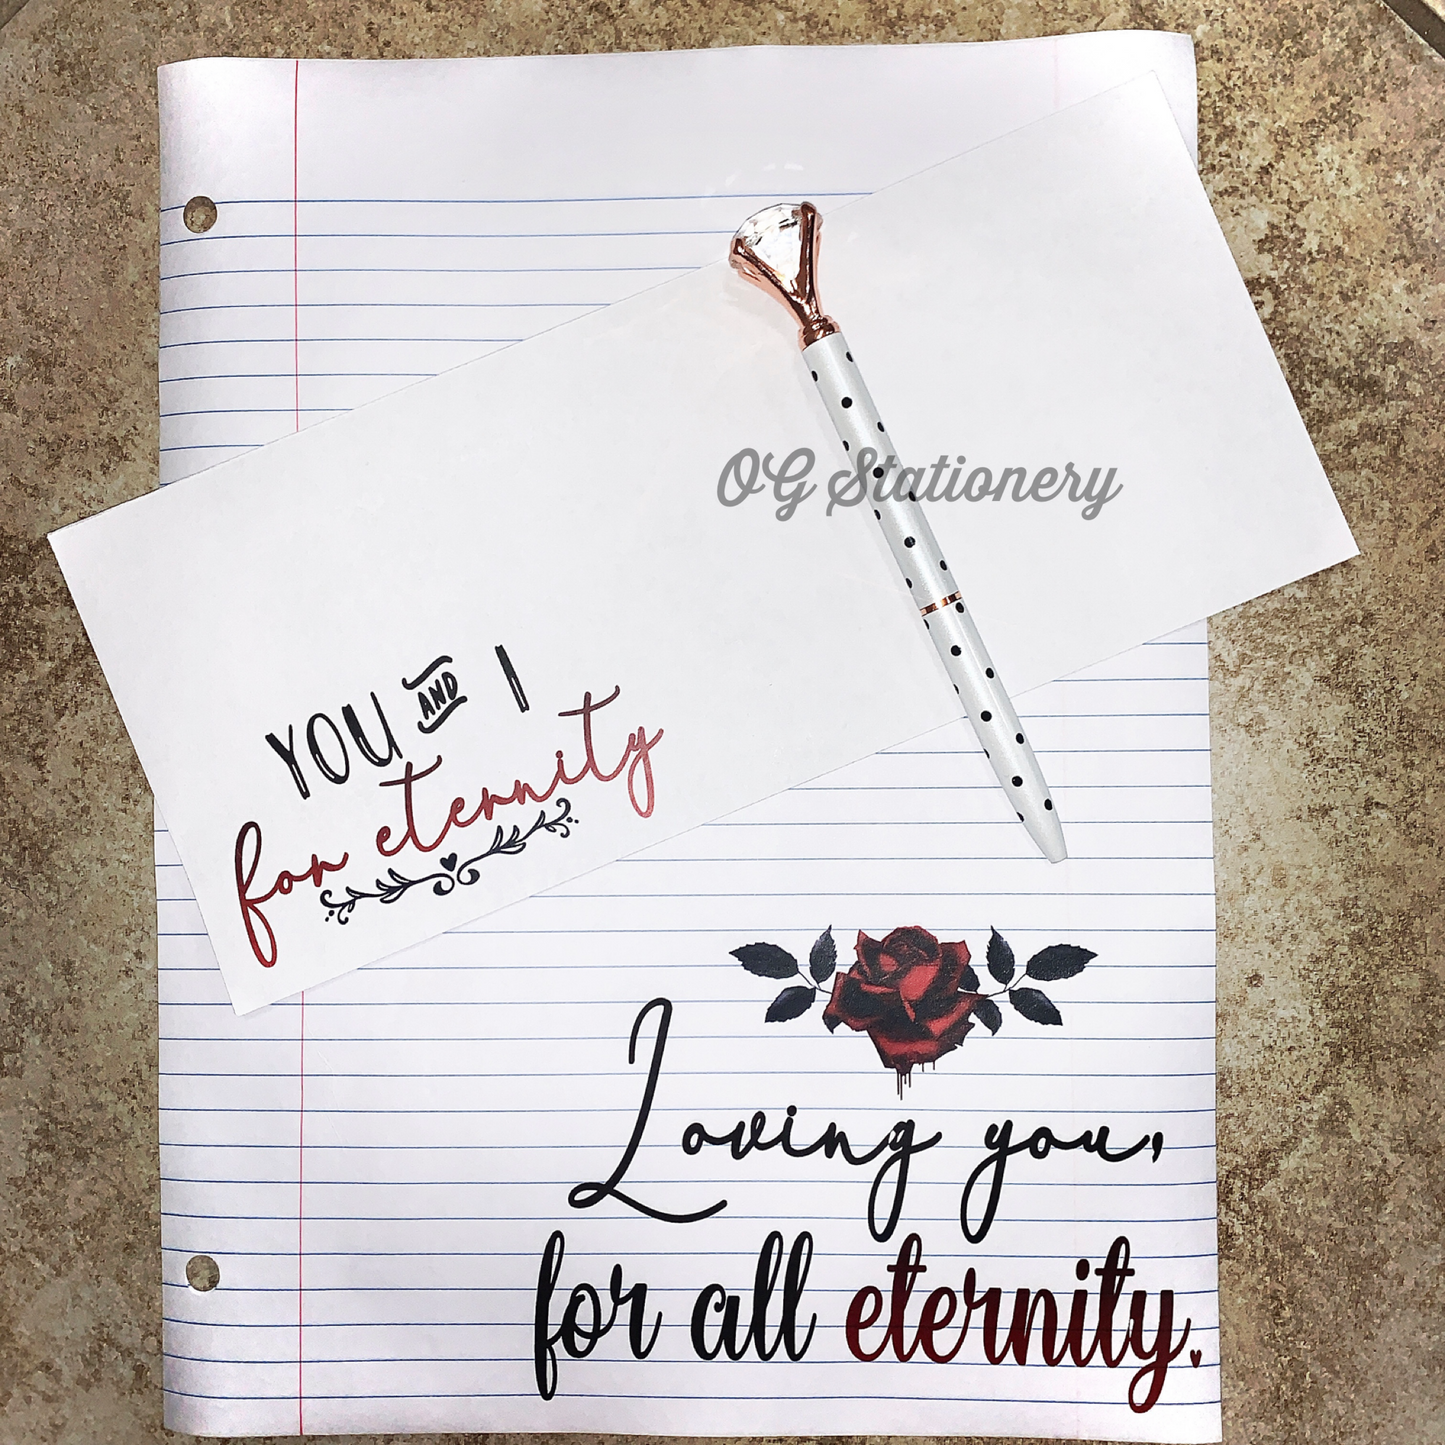 OG Stationery
YOU AND I
for eternity
Loving you,
for all eternity.